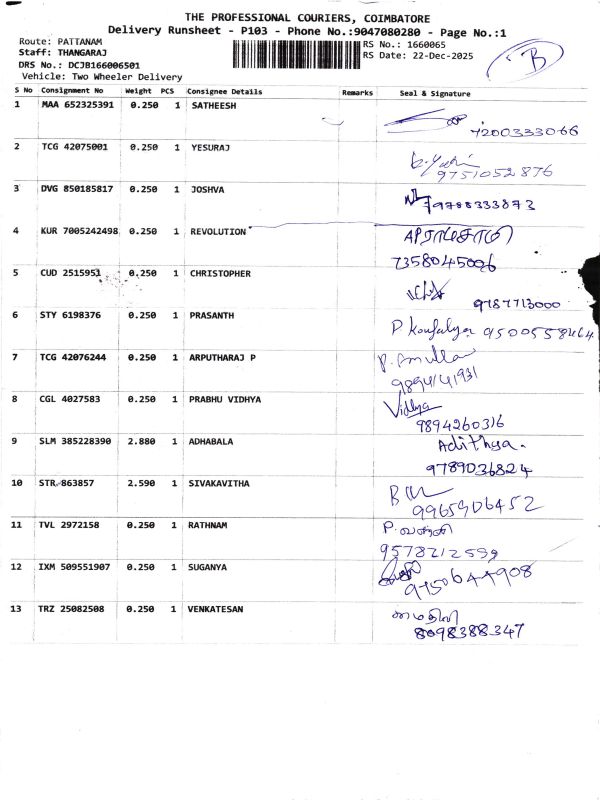 THE PROFESSIONAL COURIERS, COIMBATORE
Delivery Runsheet - P103 - Phone No.:9047080280 - Page No.:1
Route: PATTANAM
Staff: THANGARAJ
DRS No.: DCJB166006501
Vehicle: Two Wheeler Delivery
RS No.: 1660065
RS Date: 22-Dec-2025
B
S No Consignment No Weight PCS Consignee Details Remarks Seal & Signature
1 MAA 652325391 0.250 1 SATHEESH
7200333066
2 TCG 42075001 0.250 1 YESURAJ
9751052876
3 DVG 850185817 0.250 1 JOSHVA
9788333873
4 KUR 7005242498 0.250 1 REVOLUTION
7358045006
5 CUD 2515951 0.250 1 CHRISTOPHER
9787713000
6 STY 6198376 0.250 1 PRASANTH
9500558464
7 TCG 42076244 0.250 1 ARPUTHARAJ P
9894141931
8 CGL 4027583 0.250 1 PRABHU VIDHYA Vidhya
9894260316
9 SLM 385228390 2.880 1 ADHABALA Adithya.
9789036824
10 STR 863857 2.590 1 SIVAKAVITHA
9965906452
11 TVL 2972158 0.250 1 RATHNAM
9578212599
12 IXM 509551907 0.250 1 SUGANYA
9750644908
13 TRZ 25082508 0.250 1 VENKATESAN மைதிலி
8098388347